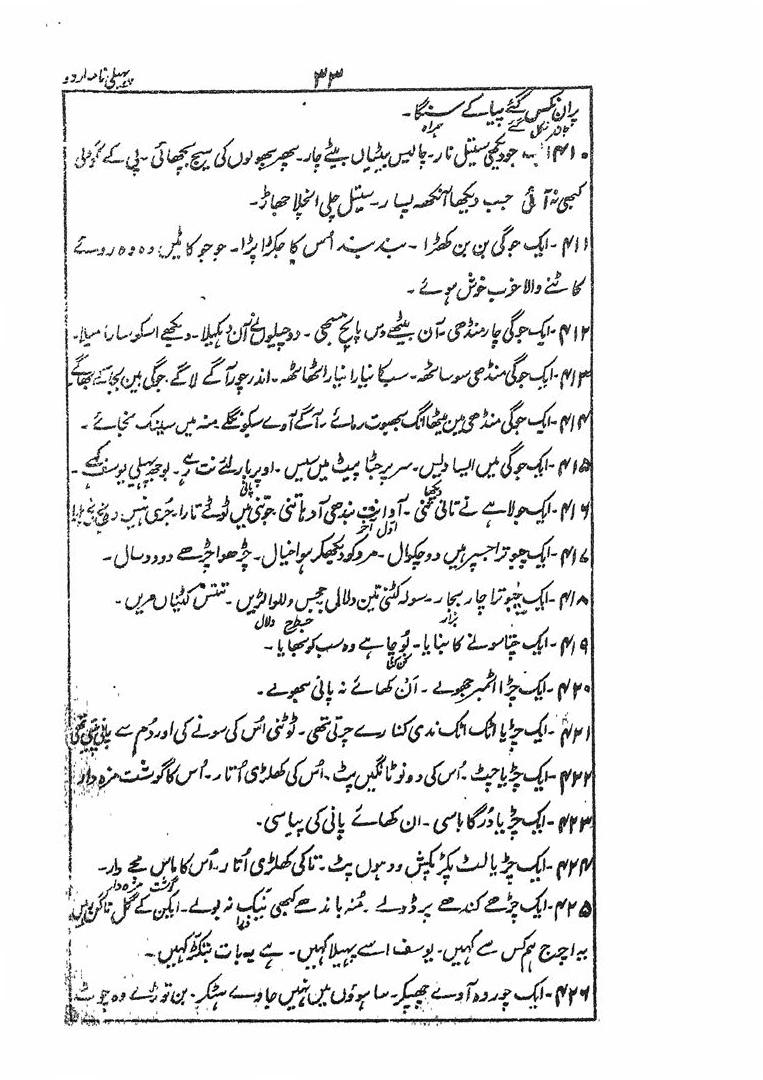 پہیلی نامہ اردو
۳۳
پران نکس گئے پیا کے سنگا۔
ہمراہ
۴۱۰۔ جو دیکھی سیتل نار۔ چالیس بیٹیاں بیٹے چار۔ پھر پھولوں کی سیج بچھائی۔ پی کے
کبھی نہ آئی جب دیکھا آنکھ پسار۔ سیتل چلی انچلا جھاڑ۔
۴۱۱۔ ایک جوگی بن بن کھڑا۔ بند بند اُس کا جکڑا پڑا۔ جو جو کاٹیں وہ وہ روئے
کاٹنے والا خوب خوش ہوئے۔
۴۱۲۔ ایک جوگی چار منڈھی۔ آن بیٹھے دس پانچ سبھی۔ دو چیلوں نے آن دہکیلا۔ دیکھے اسکو سارا میلا۔
۴۱۳۔ ایک جوگی منڈھی سو ساٹھ۔ سب کا نیارا نیارا ٹھاٹھ۔ اندر چور آگے لاگے۔ جوگی بین بجائے بھاگے
۴۱۴۔ ایک جوگی منڈھی میں بیٹھا انگ بھبوت رمائے۔ آگے آوے سکو نگلے منہ میں سینک نجائے۔
۴۱۵۔ ایک جوگی میں ایسا دیس۔ سر پر جٹا پیٹ میں سیس۔ اوپر بار لئے نت رہے۔ بوجھ پہیلی یوسف کہے۔
۴۱۶۔ ایک جولاہے نے تانی تنی۔ بندھی آد ہاتنی جوتنی میں ٹوٹے تارا۔ جری نہیں
اول آخر
۴۱۷۔ ایک چبوترا جسپر ہیں دو چکوال۔ مرد کو دیکھکر ہوا خیال۔ چڑھوا چڑھے دو دو سال۔
۴۱۸۔ ایک چبوترا چار بجار۔ سولہ کٹنی تین دلالی چھبس وللوا لڑیں۔ تنتس کٹنیاں مریں۔
بزار دلال
۴۱۹۔ ایک چتا سونے کا بنایا۔ بُوچا ہے وہ سب کو بھایا۔
کن کٹا
۴۲۰۔ ایک چڑا اٹمبر جھولے۔ اَن کھائے نہ پانی سھولے۔
۴۲۱۔ ایک چڑیا اٹک اٹک ندی کنارے چرتی تھی۔ ٹوٹنی اُس کی سونے کی اور دُم سے پانی پیتی تھی
۴۲۲۔ ایک چڑیا چٹ۔ اُس کی دونو ٹانگیں پٹ۔ اُس کی کھلڑی اُتار۔ اُس کا گوشت مزہ دار
۴۲۳۔ ایک چڑیا دُرگا باسی۔ ان کھائے پانی کی پیاسی۔
۴۲۴۔ ایک چڑیا لٹ پکڑ پکھش دوہوں پٹ۔ تاکی کھلڑی اُتار۔ اُس کا ماس مجے دار۔
گوشت مزہ دار
۴۲۵۔ ایک چڑھے کندھے پر ڈولے۔ مُنہ باندھے کبھی نیک نہ بولے۔
ذرا
یہ اچرج ہم کس سے کہیں۔ یوسف اسے پہیلا کہیں۔ ہے یہ بات بتکڑ کہیں۔
۴۲۶۔ ایک چور وہ آوے چھپکر۔ ساہوؤں میں نہیں جاوے ہٹکر۔ بن توڑے وہ